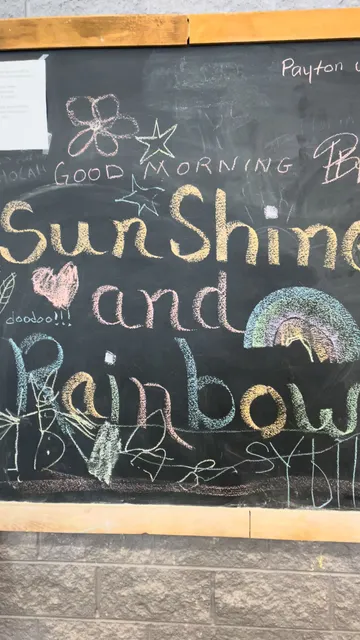 Payton
GOOD MORNING
Sunshine
and
doodoo!!!
Rainbow